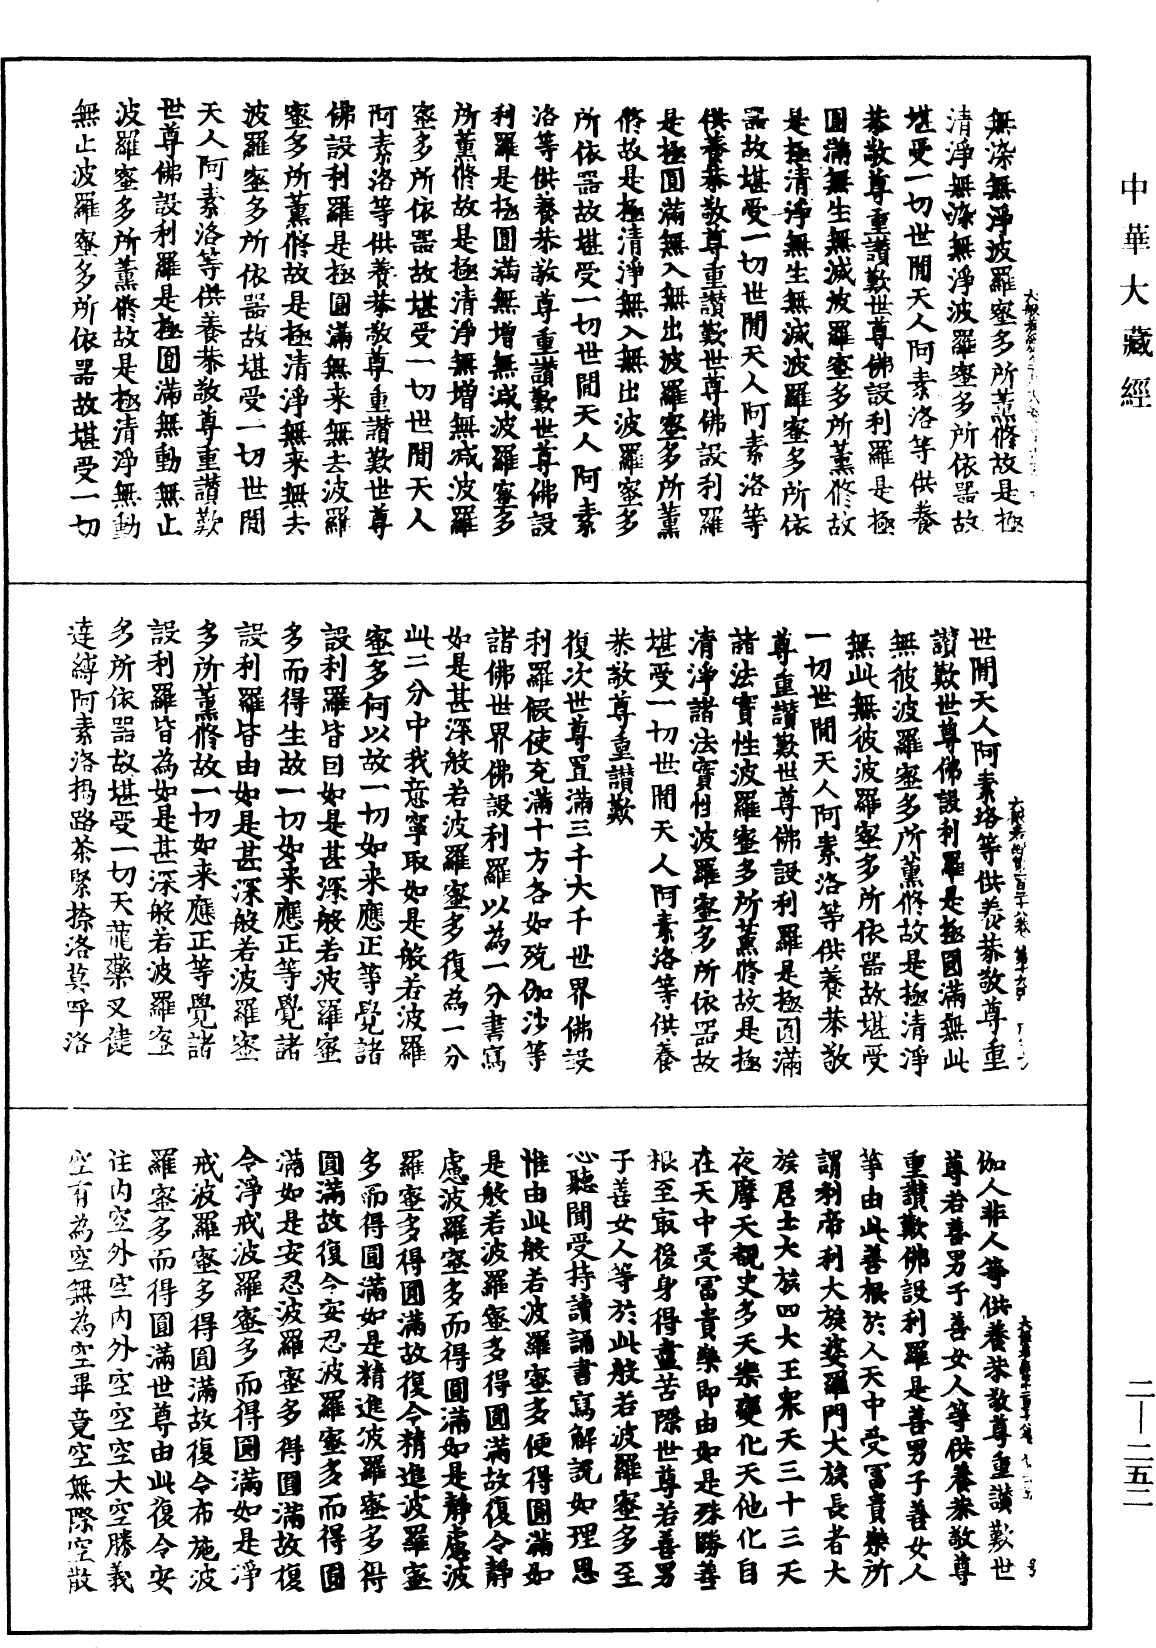 中華大藏經
無染無淨波羅蜜多所薰修故是極
清淨無染無淨波羅蜜多所依器故
堪受一切世間天人阿素洛等供養
恭敬尊重讚歎世尊佛設利羅是極
圓滿無生無減波羅蜜多所薰修故
是極清淨無生無減波羅蜜多所依
器故堪受一切世間天人阿素洛等
供養恭敬尊重讚歎世尊佛設利羅
是極圓滿無入無出波羅蜜多所薰
修故是極清淨無入無出波羅蜜多
所依器故堪受一切世間天人阿素
洛等供養恭敬尊重讚歎世尊佛設
利羅是極圓滿無增無減波羅蜜多
所薰修故是極清淨無增無減波羅
蜜多所依器故堪受一切世間天人
阿素洛等供養恭敬尊重讚歎世尊
佛設利羅是極圓滿無来無去波羅
蜜多所薰修故是極清淨無来無去
波羅蜜多所依器故堪受一切世間
天人阿素洛等供養恭敬尊重讚歎
世尊佛設利羅是極圓滿無動無止
波羅蜜多所薰修故是極清淨無動
無止波羅蜜多所依器故堪受一切
世間天人阿素洛等供養恭敬尊重
讚歎世尊佛設利羅是極圓滿無此
無彼波羅蜜多所薰修故是極清淨
無此無彼波羅蜜多所依器故堪受
一切世間天人阿素洛等供養恭敬
尊重讚歎世尊佛設利羅是極圓滿
諸法實性波羅蜜多所薰修故是極
清淨諸法實性波羅蜜多所依器故
堪受一切世間天人阿素洛等供養
恭敬尊重讚歎
復次世尊置滿三千大千世界佛設
利羅假使充滿十方各如殑伽沙等
諸佛世界佛設利羅以為一分書寫
如是甚深般若波羅蜜多復為一分
此二分中我意寧取如是般若波羅
蜜多何以故一切如来應正等覺諸
設利羅皆因如是甚深般若波羅蜜
多而得生故一切如来應正等覺諸
設利羅皆由如是甚深般若波羅蜜
多所薰修故一切如来應正等覺諸
設利羅皆為如是甚深般若波羅蜜
多所依器故堪受一切天龍藥叉健
達縛阿素洛揭路荼緊捺洛莫呼洛
伽人非人等供養恭敬尊重讚歎世
尊若善男子善女人等供養恭敬尊
重讚歎佛設利羅是善男子善女人
等由此善根於人天中受富貴樂所
謂剎帝利大族婆羅門大族長者大
族居士大族四大王衆天三十三天
夜摩天覩史多天樂變化天他化自
在天中受富貴樂即由如是殊勝善
根至寂後身得盡苦際世尊若善男
子善女人等於此般若波羅蜜多至
心聽聞受持讀誦書寫解說如理思
惟由此般若波羅蜜多便得圓滿如
是般若波羅蜜多得圓滿故復令靜
慮波羅蜜多而得圓滿如是靜慮波
羅蜜多得圓滿故復令精進波羅蜜
多而得圓滿如是精進波羅蜜多得
圓滿故復令安忍波羅蜜多而得圓
滿如是安忍波羅蜜多得圓滿故復
令淨戒波羅蜜多而得圓滿如是淨
戒波羅蜜多得圓滿故復令布施波
羅蜜多而得圓滿世尊由此復令安
住内空外空内外空空空大空勝義
空有為空無為空畢竟空無際空散
二—二五二